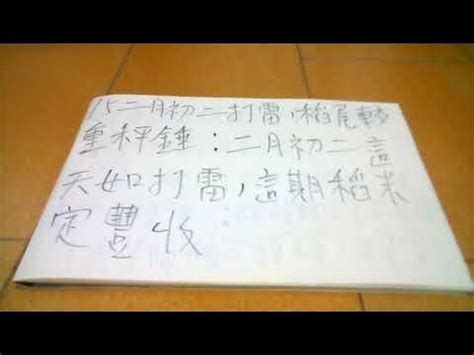 15二月初二打雷,稻尾較
重秤錘:二月初二這
天如打雷,這期稻
定豐收